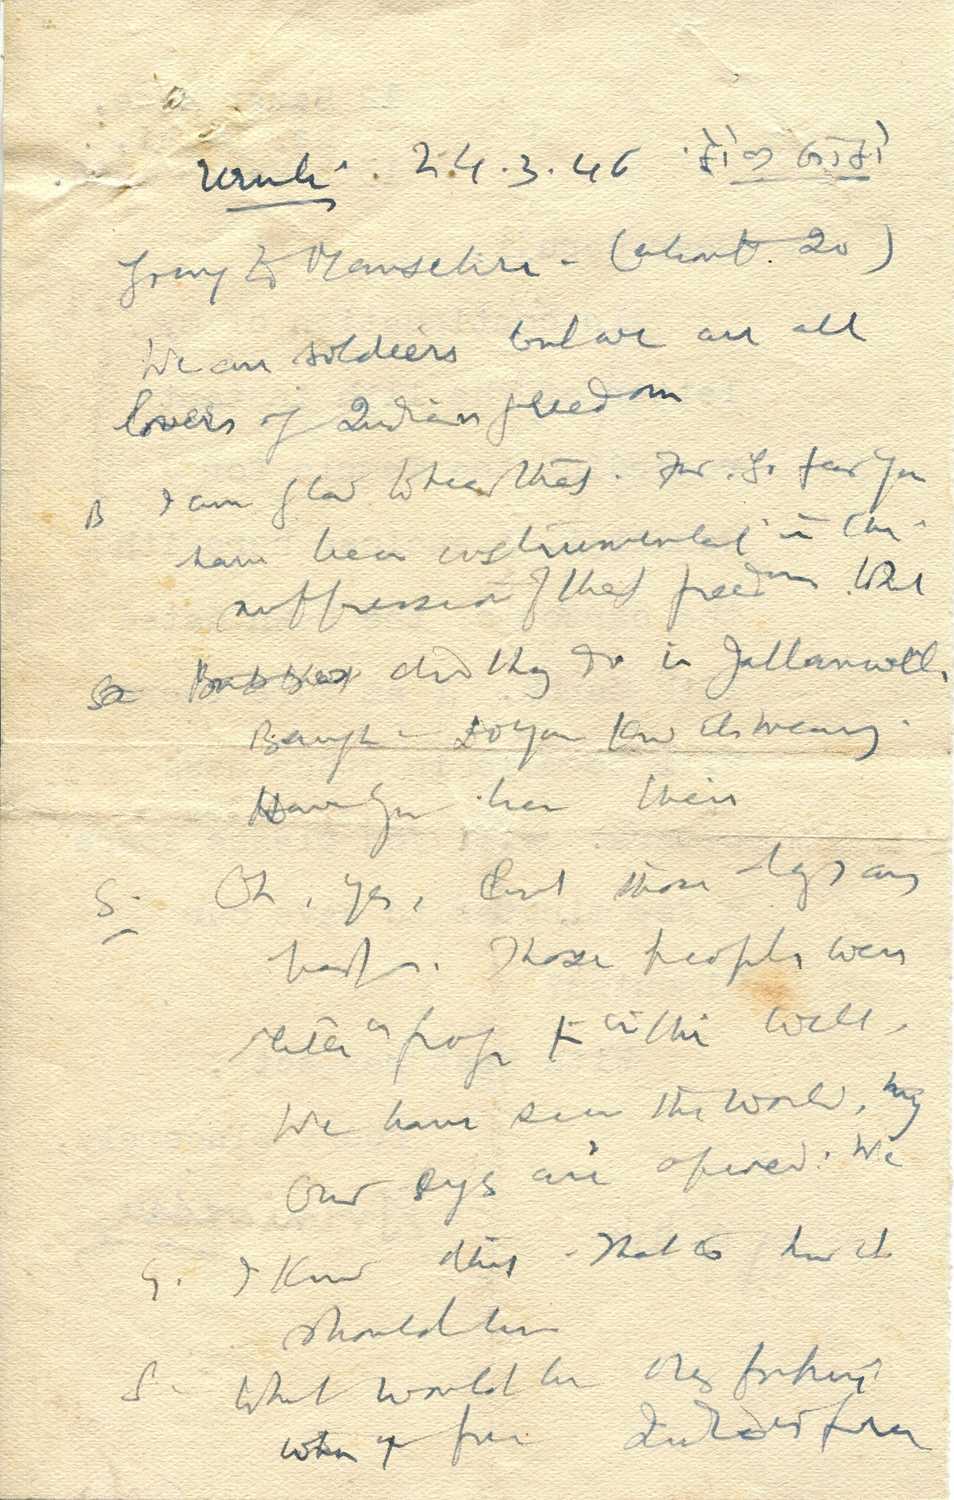 Uruli. 24.3.46
to (about 20)
We are soldiers but we are all
lovers of Indian freedom
I am glad to hear that. For. So far you
have been instrumental in the
suppression of that freedom. What
did they do in Jallianwalla
Baugh - Do you know its meaning.
Have you been there
S. Oh, yes, but those days are
past. Those people were
like a frog in the well.
We have seen the world, my
Our eyes are opened. We
G. I know this. That is how it
should be
S. What would be the
when free